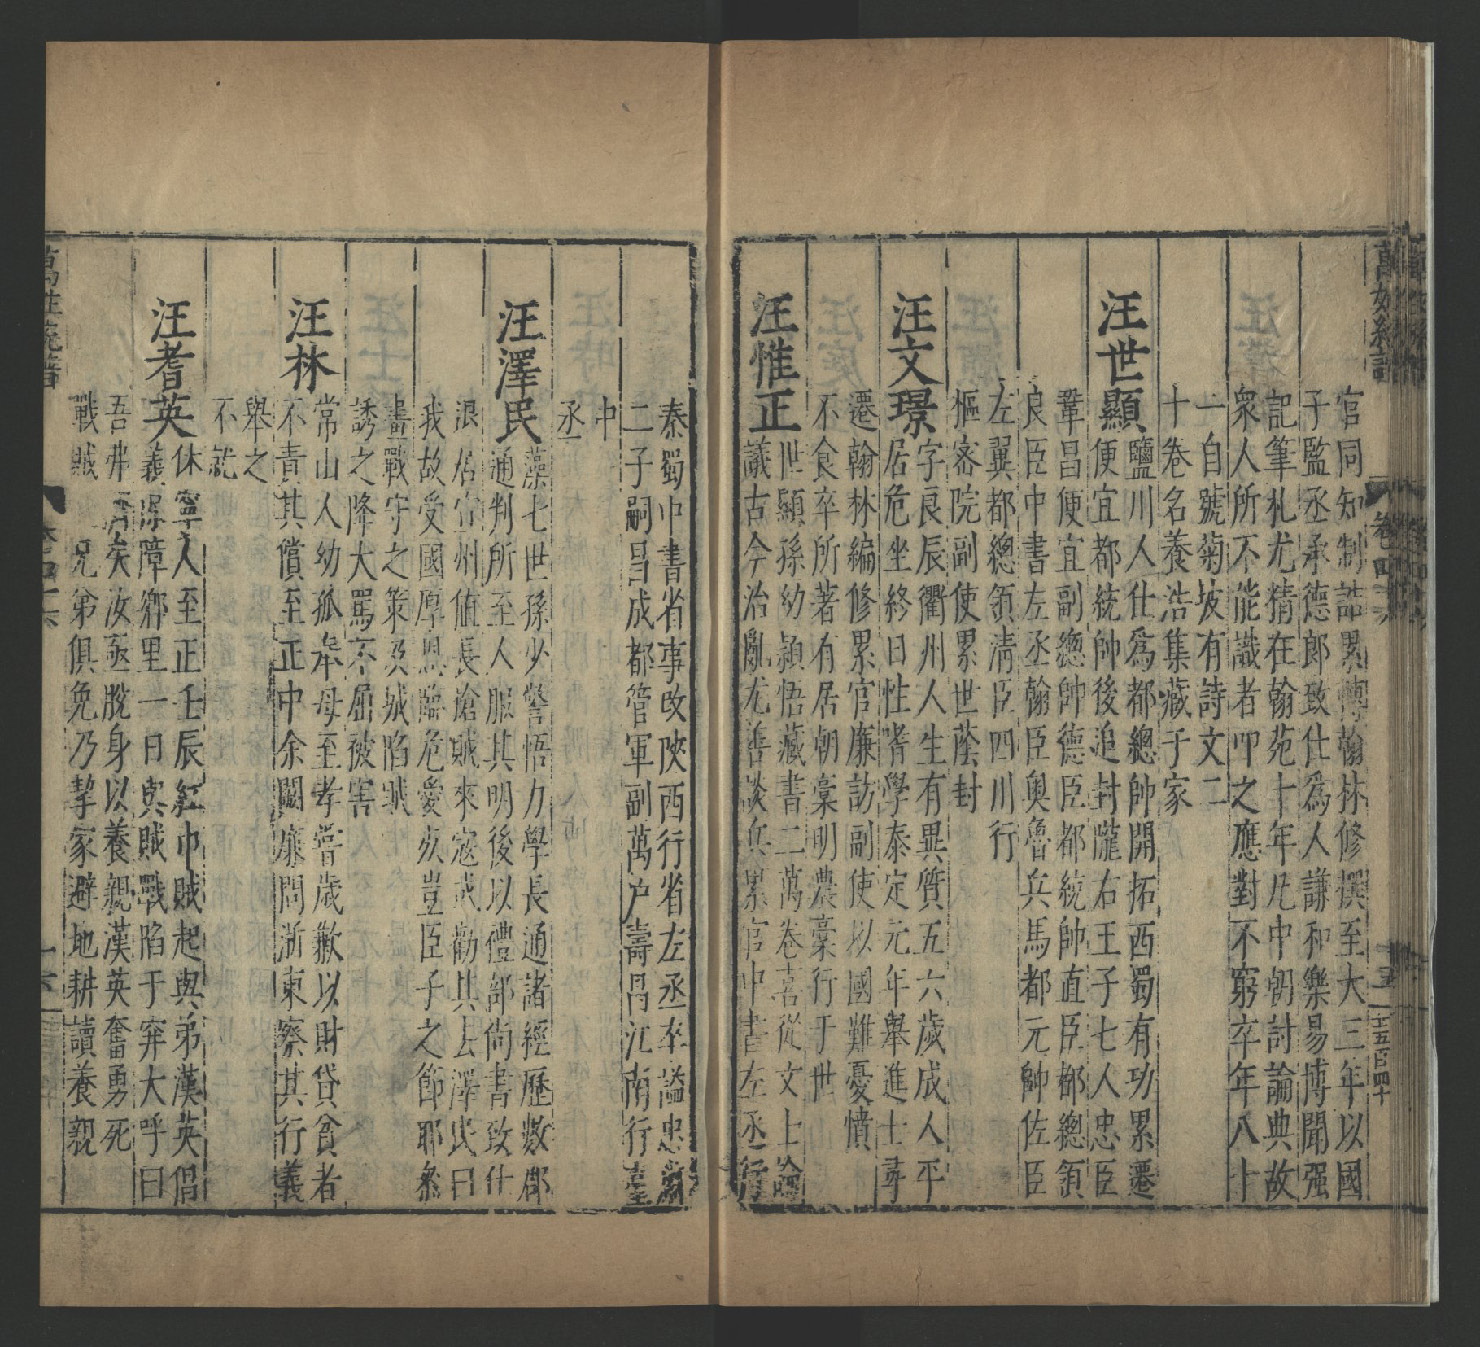 官同知制誥累轉翰林修撰至大三年以國
子監丞承德郎致仕為人謙和樂易博聞强
記筆札尤精在翰苑十年凡中朝討論典故
衆人所不能識者叩之應對不窮卒年八十
一自號菊坡有詩文二
十卷名養浩集藏子家
汪世顯
鹽川人仕為都總帥開拓西蜀有功累遷
便宜都統帥後追封隴右王子七人忠臣
鞏昌便宜副總帥德臣都統帥直臣都總領
良臣中書左丞翰臣奥魯兵馬都元帥佐臣
左翼都總領清臣四川行
樞密院副使累世蔭封
汪文璟
字辰良衢州人生有異質五六歲成人平
居危坐終日性嗜學泰定元年舉進士尋
遷翰林編修累官廉訪副使以國難憂憤
不食卒所著有居朝藁明農藁行于世
汪惟正
世顯孫幼頴悟藏書二萬卷喜從文士論
議古今治亂尤善談兵累官中書左丞行
秦蜀中書省事改陝西行省左丞卒謚忠肅
二子嗣昌成都管軍副萬户壽昌江南行臺
中
丞
汪澤民
藻七世孫少警悟力學長通諸經歷數郡
通判所至人服其明後以禮部尚書致仕
退居宣州値長槍賊來寇或勸其去澤民曰
我故受國厚恩臨危愛死豈臣子之節耶叅
畫戰守之策及城陷賊
誘之降大罵不屈被害
汪林
常山人幼孤奉母至孝嘗歲歉以財貸貧者
不責其償至正中余闕廉問浙東察其行義
舉之
不就
汪耆英
休寧人至正壬辰紅巾賊起與弟漢英倡
義保障鄉里一日與賊戰陷于穽大呼曰
吾弗濟矣汝亟脫身以養親漢英奮勇死
戰賊 兄弟俱免乃挈家避地耕讀養親